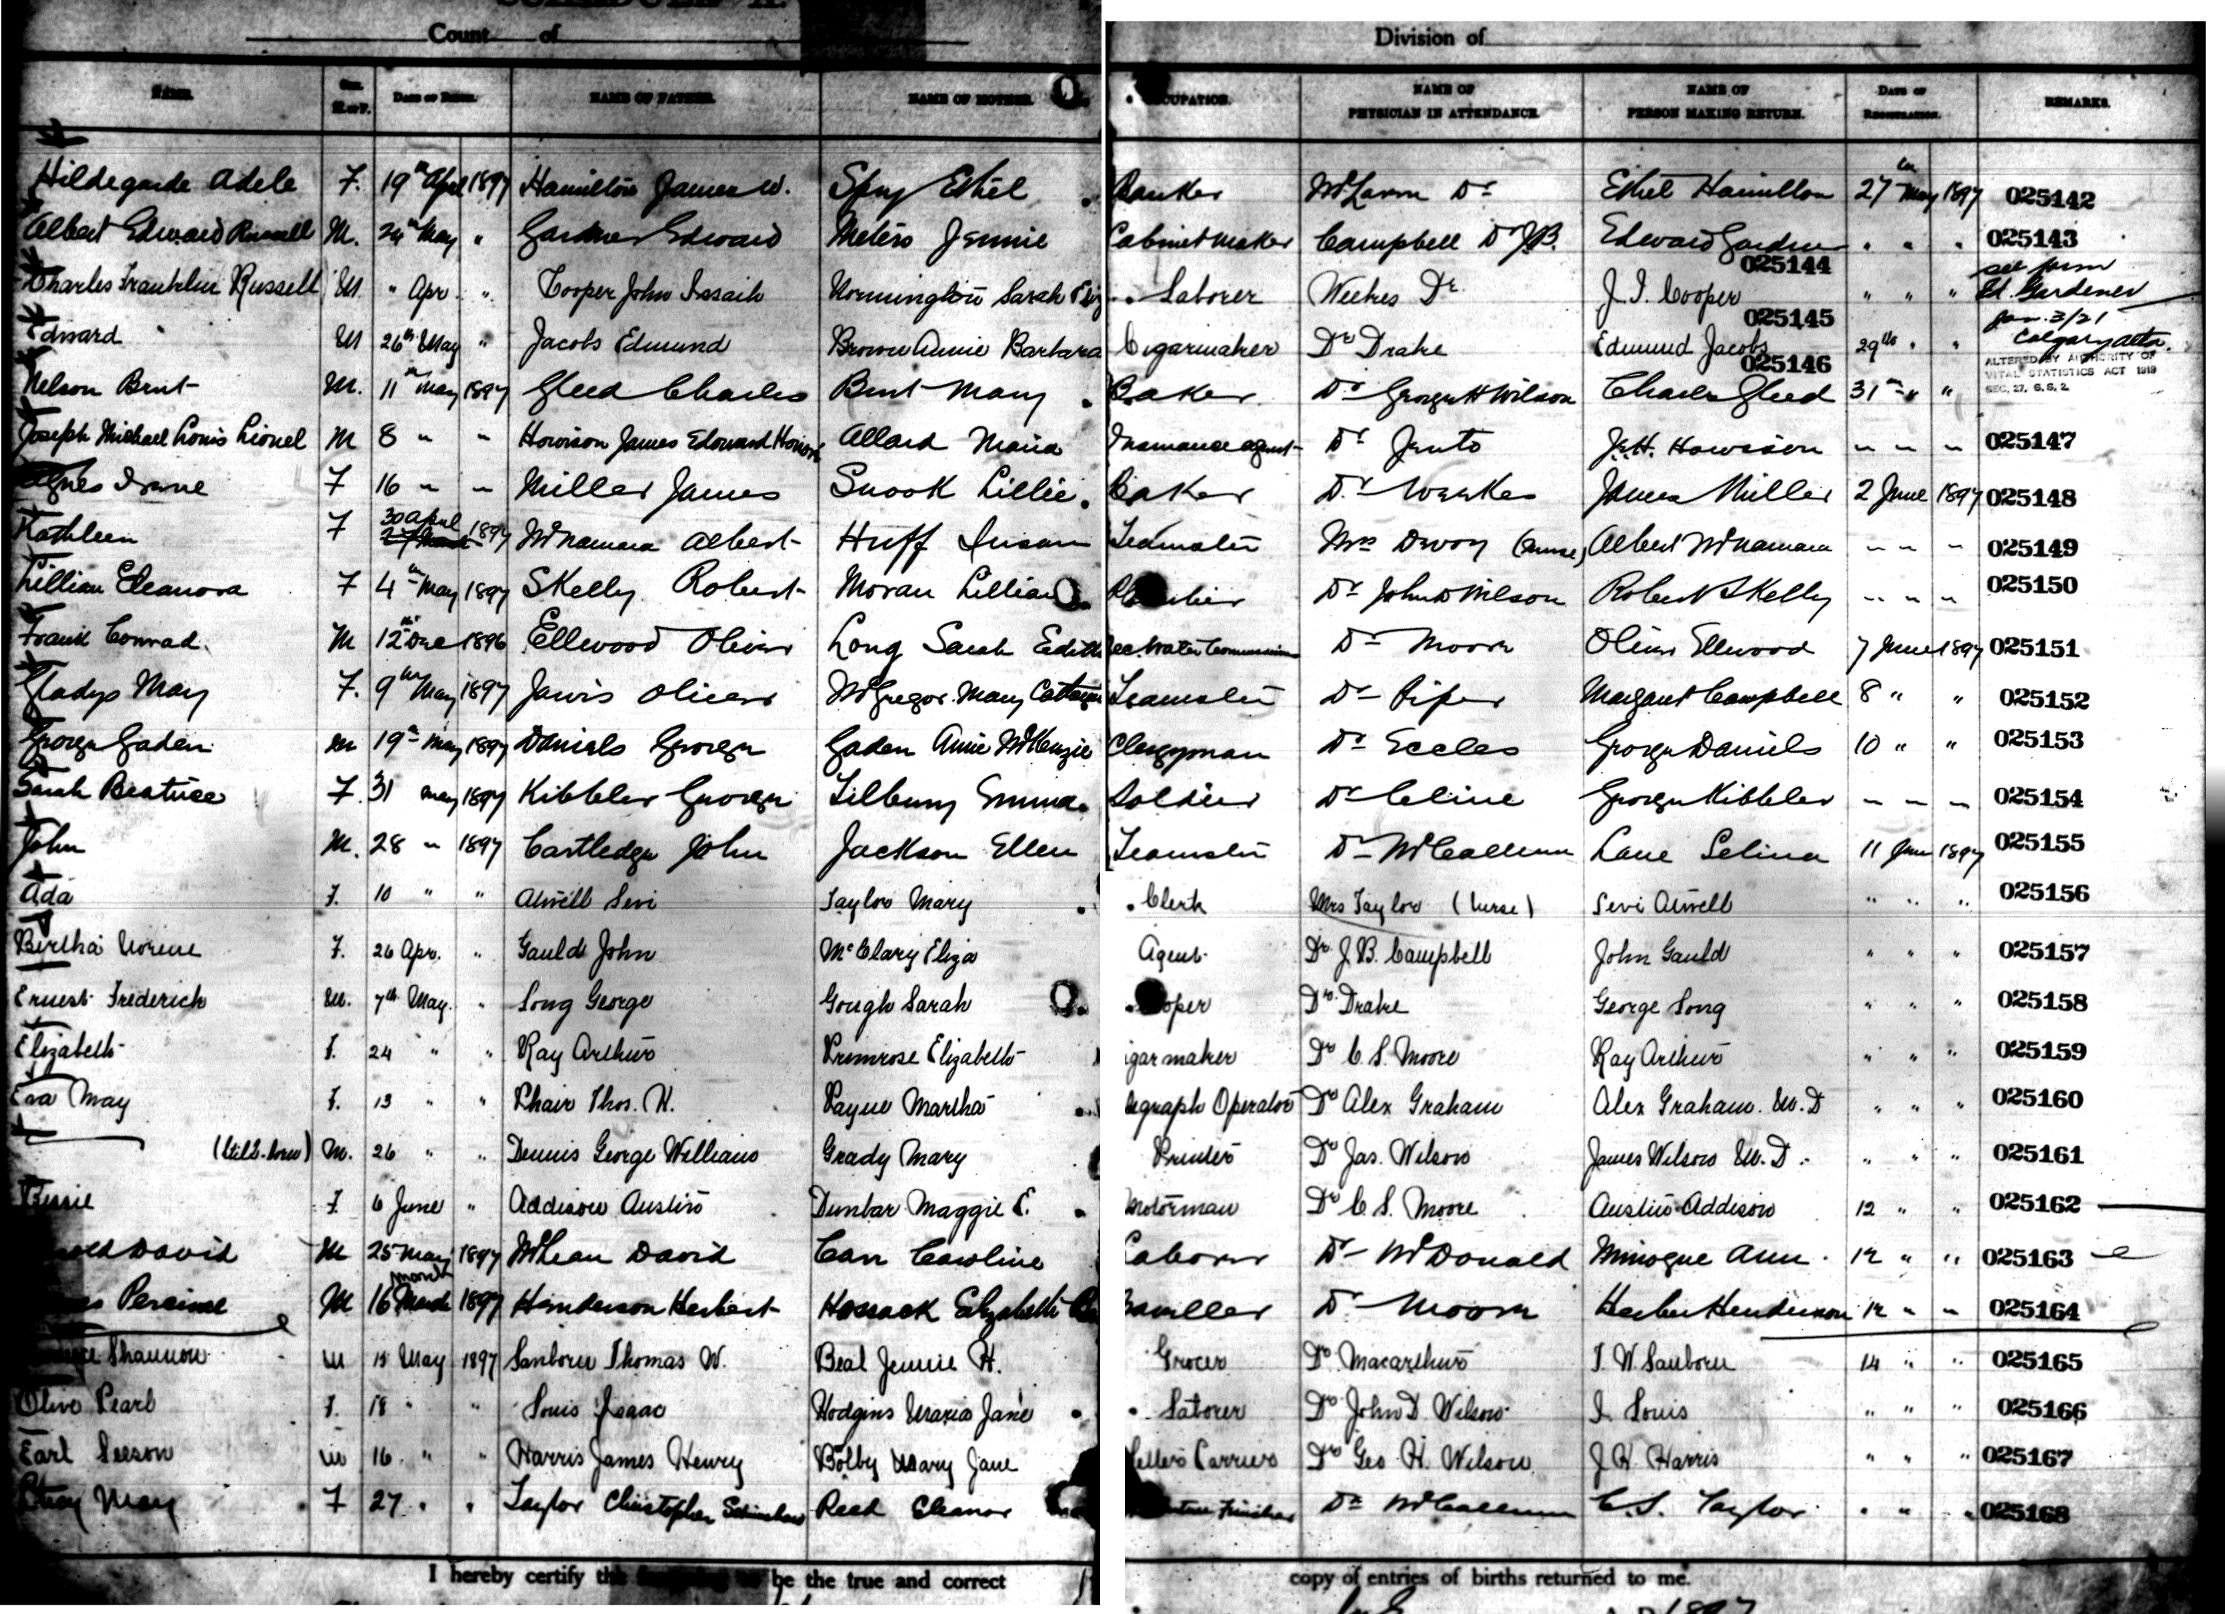 SCHEDULE A.
Count of Division of
NAME. SEX. M. or F. DATE OF BIRTH. NAME OF FATHER. NAME OF MOTHER. OCCUPATION. NAME OF PHYSICIAN IN ATTENDANCE. NAME OF PERSON MAKING RETURN. DATE OF REGISTRATION. REMARKS.
Hildegarde Adele F. 19th Apl 1897 Hamilton James W. Spry Ethel Banker McLaren Dr Ethel Hamilton 27th May 1897 025142
Albert Edward Russell M. 24th May " Gardner Edward Meters Jennie Cabinetmaker Campbell Dr J.B. Edward Gardner " " " 025143
Charles Franklin Russell M. " Apr. " Cooper John Issaih Normington Sarah Laborer Weekes Dr. J. I. Cooper 025144 " " " see form Ed. Gardener
Edward M 26th May " Jacobs Edmund Brown Annie Barbara Cigarmaker Dr Drake Edmund Jacobs 025145 29th " " Jan. 3/21 Calgary Alta.
Nelson Brut M. 11th May 1897 Gleed Charles Brut Mary Baker Dr George H Wilson Charles Gleed 025146 31st " " ALTERED BY AUTHORITY OF VITAL STATISTICS ACT 1919 SEC. 27, S.S. 2.
Joseph Michael Louis Lionel M 8 " " Howison James Edouard Honore Allard Maria Insurance agent Dr Jento J.H. Howison " " " 025147
Agnes Irene F 16 " " Miller James Snook Lillie Baker Dr Weekes James Miller 2 June 1897 025148
Kathleen F 30 April 1897 McNamara Albert Huff Susan Teamster Mrs Devoy (nurse) Albert McNamara " " " 025149
Lillian Eleanora F 4th May 1897 Skelly Robert Moran Lillian Dr John D Wilson Robert Skelly " " " 025150
Frank Conrad. M 12th Dec 1896 Ellwood Oliver Long Sarah Edith Sec. Water Commission Dr Moore Oliver Ellwood 7 June 1897 025151
Gladys May F. 9th May 1897 Jarvis Oliver McGregor Mary Teamster Dr Piper Margaret Campbell 8 " " 025152
George Gaden M 19th May 1897 Daniels George Gaden Annie McKenzie Clergyman Dr Eccles George Daniels 10 " " 025153
Sarah Beatrice F. 31 May 1897 Kibbler George Tilbury Emma Soldier Dr Cline George Kibbler " " " 025154
John M. 28 " 1897 Cartledge John Jackson Ellen Teamster Dr McCallum Lane Selina 11 June 1897 025155
Ada F. 10 " " Atwell Levi Taylor Mary Clerk Mrs Taylor (Nurse) Levi Atwell " " " 025156
Bertha Norene F. 26 Apr. " Gauld John McClary Eliza Agent Dr J. B. Campbell John Gauld " " " 025157
Ernest Frederick M. 7th May. " Long George Gough Sarah Cooper Dr. Drake George Long " " " 025158
Elizabeth F. 24 " " Ray Arthur Primrose Elizabeth Cigar maker Dr C. S. Moore Ray Arthur " " " 025159
Eva May F. 13 " " Phair Thos. H. Payne Martha Telegraph Operator Dr Alex Graham Alex Graham. M.D " " " 025160
(Still-born) M. 26 " " Dennis George William Grady Mary Printer Dr Jas. Wilson James Wilson M.D. " " " 025161
Bessie F. 6 June " Addison Austin Dunbar Maggie E. Motorman Dr C. S. Moore Austin Addison 12 " " 025162
David M 25 May 1897 McLean David Carr Caroline Laborer Dr McDonald Minogue Ann 12 " " 025163
Percival M 16 March 1897 Henderson Herbert Hossack Elizabeth Traveller Dr Moore Herbert Henderson 12 " " 025164
Shannon M 15 May 1897 Sanborn Thomas W. Beal Jennie H. Grocer Dr Macarthur T. W. Sanborn 14 " " 025165
Olive Pearl F. 18 " " Louis Isaac Hodgins Maria Jane Laborer Dr John D. Wilson I. Louis " " " 025166
Earl Leeson M 16 " " Harris James Henry Bolby Mary Jane Letter Carrier Dr Geo H. Wilson J H Harris " " " 025167
May F 27 " " Taylor Christopher Reed Eleanor Dr McCallum C.S. Taylor " " " 025168
I hereby certify the be the true and correct copy of entries of births returned to me.
1897